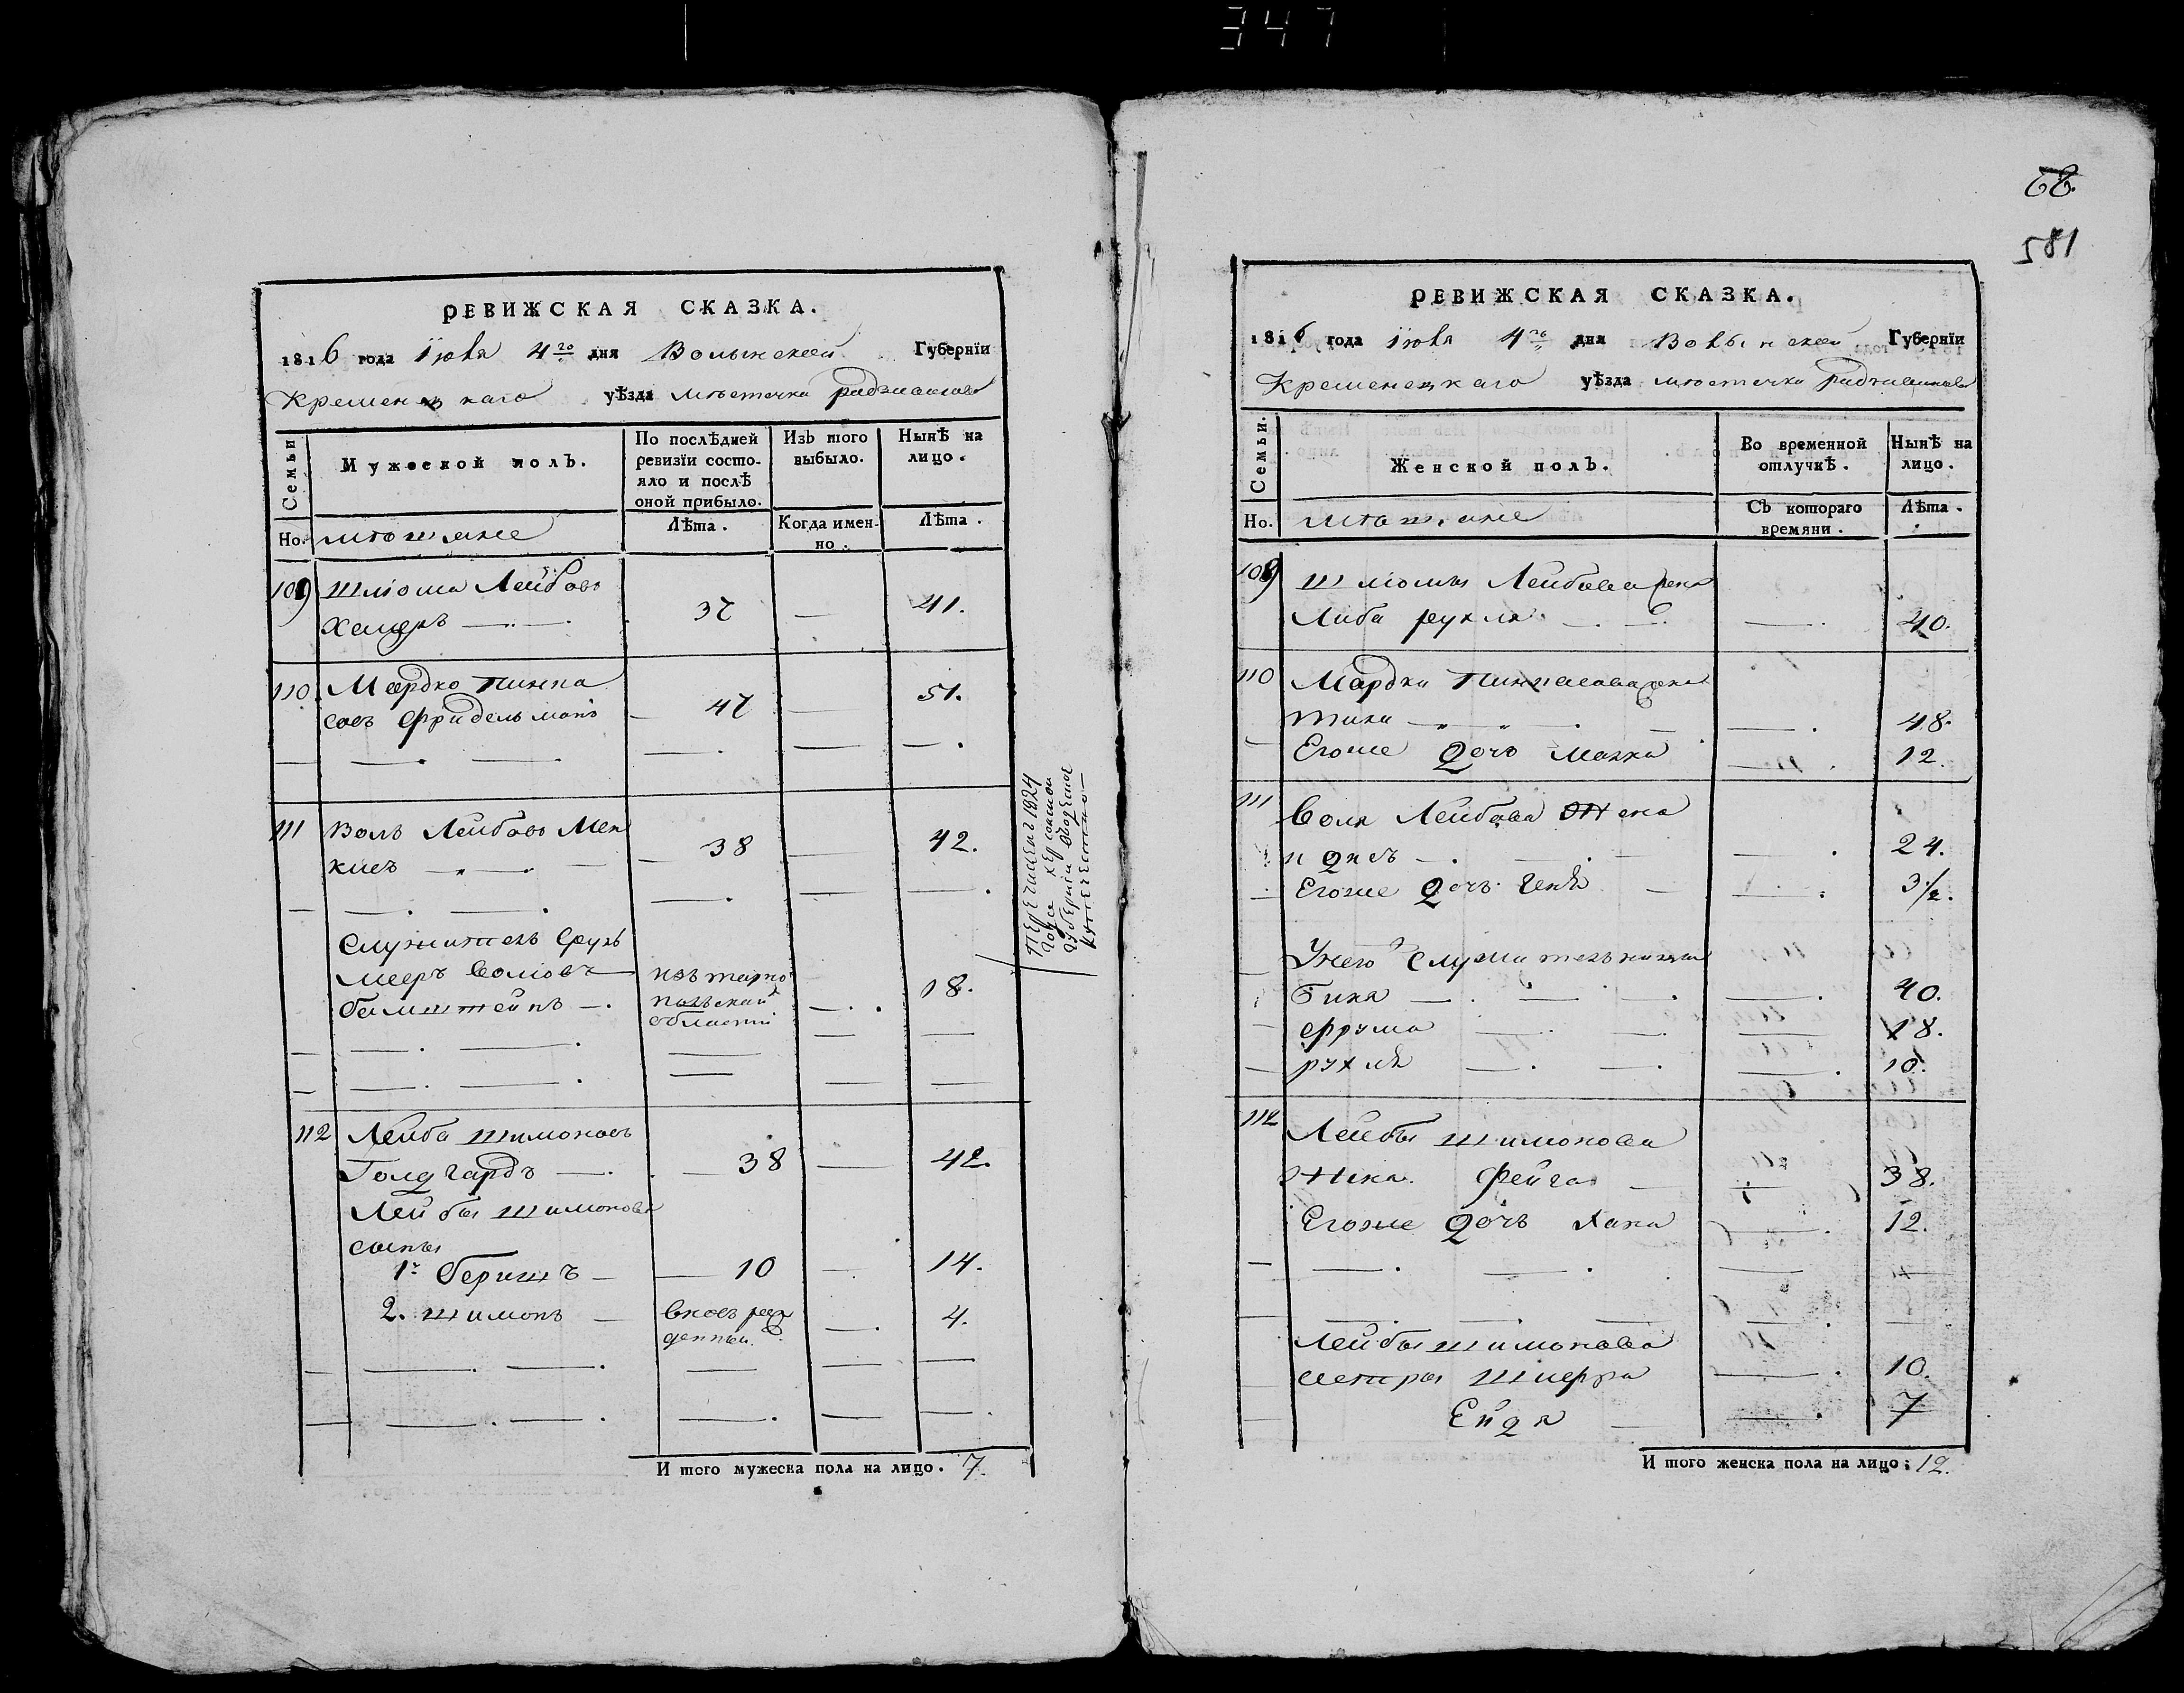 347
68.
581
РЕВИЖСКАЯ СКАЗКА.
1816 года Іюля 4го дня Волынской Губернїи
Кременецкаго уѣзда мѣстечка Радзивилова
Семьи
Мужеской полъ.
По послѣдней ревизїи состояло и послѣ оной прибыло.
Изъ того выбыло.
Нынѣ на лицо.
Но.
мѣщане
Лѣта.
Когда именно.
Лѣта.
109 Шліома Лейбовъ
37 — 41.
110. Мордко Пинка
совъ Фридельманъ — 47 — 51.
111 Волъ Лейбовъ
— 38 — 42.
Служитель
Мееръ Воліовъ изъ Тарно
— 18.
польской
области
112 Лейба Шимоновъ
Голдгардъ — 38 — 42.
Лейбы Шимонова
сыны
1й Беришъ — 10 — 14.
2. Шимонъ — вновь рож
денный. — 4.
И того мужеска пола на лицо. 7.
Перечисленъ 1824
года Херсонской
губерніи
купечество
РЕВИЖСКАЯ СКАЗКА.
1816 года Іюля 4го дня Волынской Губернїи
Кременецкаго уѣзда мѣстечка Радзивилова
Семьи.
Женской полъ.
Во временной отлучкѣ.
Нынѣ на лицо.
Но.
мѣщане
Съ котораго времяни.
Лѣта.
109 Шліомы Лейбова жена
Либа Рухля — 40.
110 Мордки Пинкасова жена
— 48.
Егоже дочь Малка — 12.
111 Воля Лейбова жена
— 24.
Егоже дочь Геня — 3 1/2.
У него служительницы
— 40.
Фрума — 18.
Рухля — 10.
112 Лейбы Шимонова
жена Фейга — 38.
Егоже дочь Хана — 12.
Лейбы Шимонова
сестры Шифра — 10.
Ейдя — 7
И того женска пола на лицо: 12.